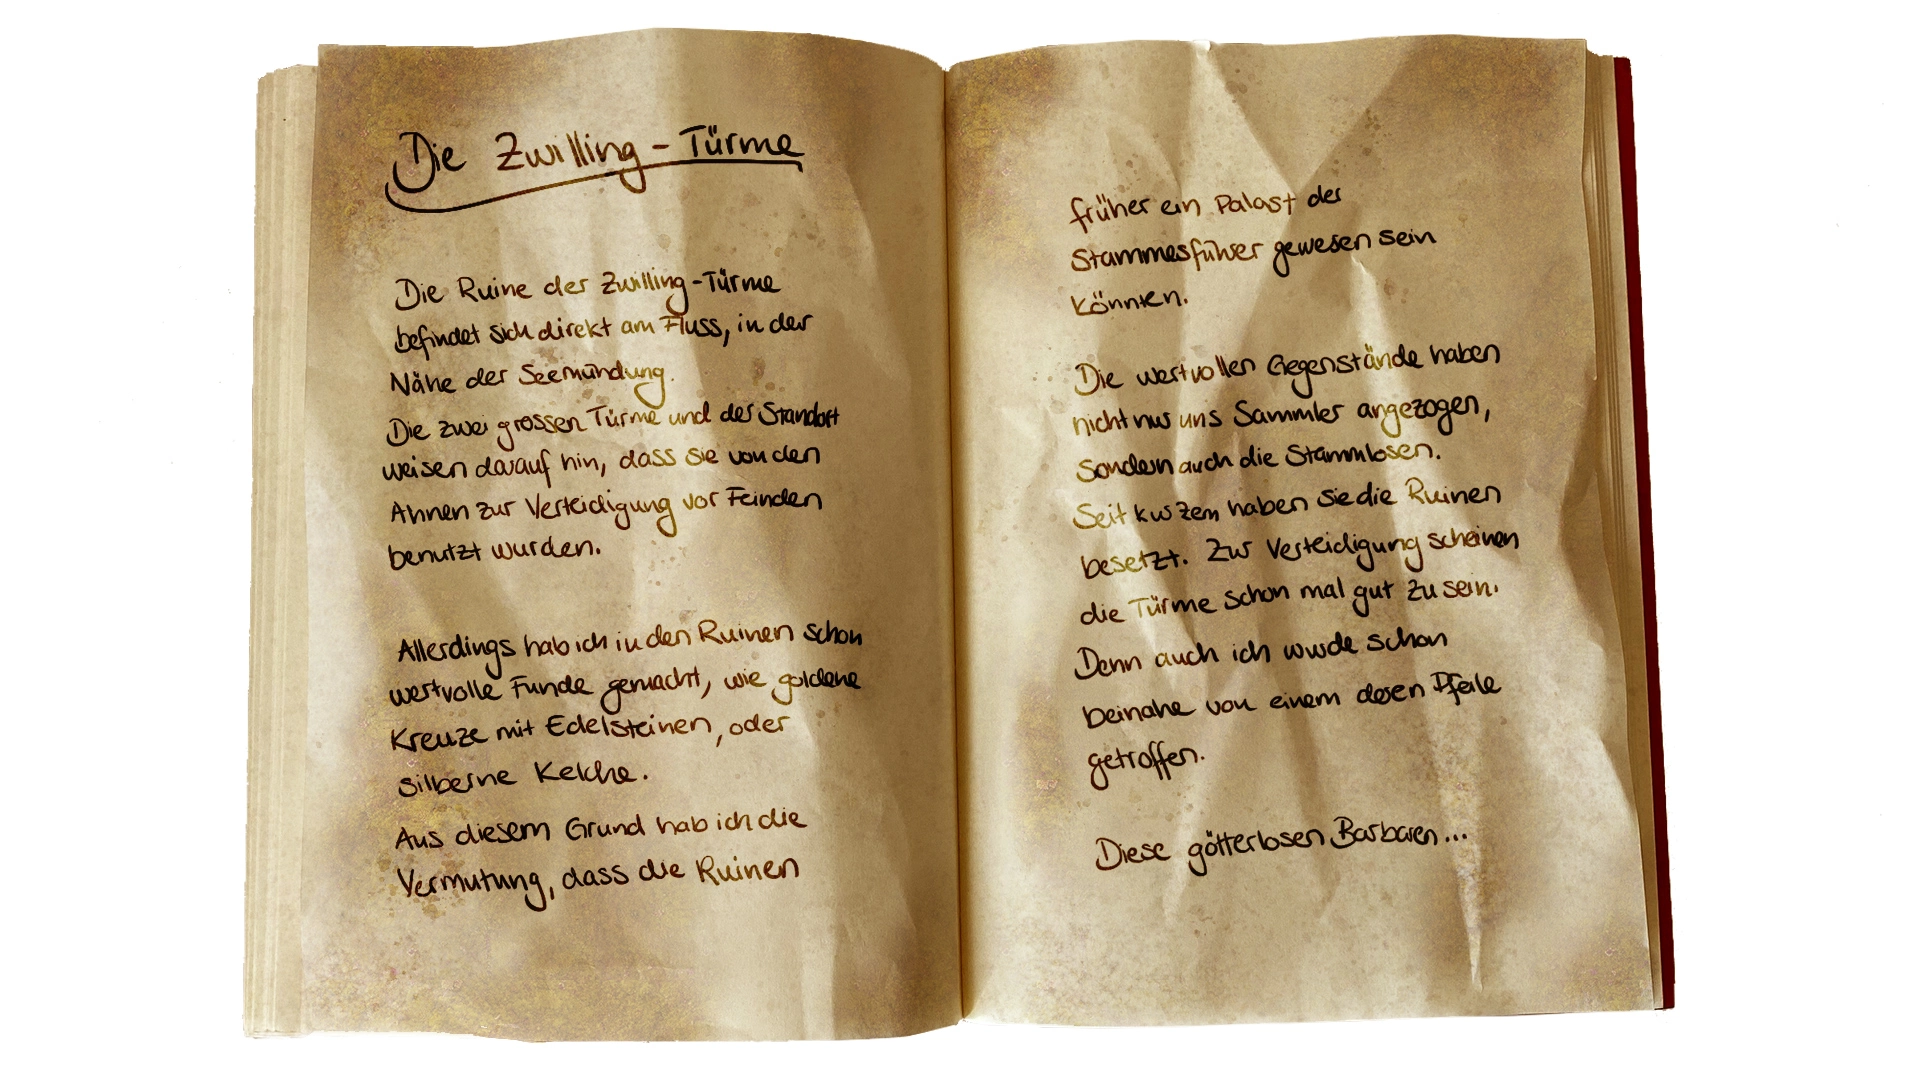 Die Zwilling-Türme
Die Ruine der Zwilling-Türme
befindet sich direkt am Fluss, in der
Nähe der Seemündung.
Die zwei grossen Türme und der Standort
weisen darauf hin, dass sie von den
Ahnen zur Verteidigung vor Feinden
benutzt wurden.
Allerdings hab ich in den Ruinen schon
wertvolle Funde gemacht, wie goldene
Kreuze mit Edelsteinen, oder
silberne Kelche.
Aus diesem Grund hab ich die
Vermutung, dass die Ruinen
früher ein Palast der
Stammesführer gewesen sein
könnten.
Die wertvollen Gegenstände haben
nicht nur uns Sammler angezogen,
sondern auch die Stammlosen.
Seit kurzem haben sie die Ruinen
besetzt. Zur Verteidigung scheinen
die Türme schon mal gut zu sein.
Denn auch ich wurde schon
beinahe von einem deren Pfeile
getroffen.
Diese götterlosen Barbaren...